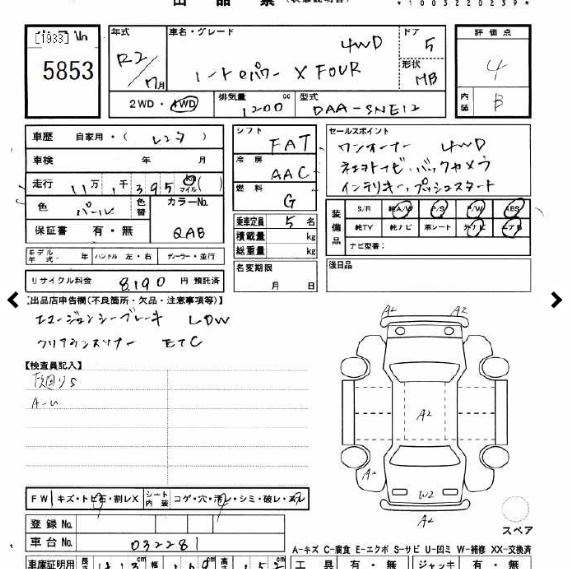 出品票
*1003220239*
[1933]
5853
年式 R2/7月
車名・グレード ノートeパワー X FOUR 4WD
ドア 5
形状 HB
評価点 4
内装 B
2WD・4WD
排気量 1200 cc
型式 DAA-SNE12
車歴 自家用・(レンタ)
車検 年 月
走行 11万1千395 km マイル( )
色 パール 色替 カラーNo. QAB
保証書 有・無
モデル年式 年 ハンドル 左・右 ディーラー・並行
リサイクル料金 8190 円 預託済
シフト FAT
冷房 AAC
燃料 G
乗車定員 5 名
積載量 kg
総重量 kg
名変期限 月 日
セールスポイント
ワンオーナー 4WD
ネオトナビ・バックカメラ
インテリキー、プッシュスタート
装備品
S/R 純A/W P/S P/W ABS
純TV 純ナビ 革シート カナビ エアB
ナビ型番:
後日品
【出品店申告欄(不良箇所・欠品・注意事項等)】
エマージェンシーブレーキ LDW
クリアランスソナー ETC
【検査員記入】
A-U
FW キズ・トビ石・割レX シート内装 コゲ・穴・汚レ・シミ・破レ・スレ
登録No.
車台No. 032281
A2 A2
A2
A2
W2
A2
スペア
A-キズ C-腐食 E-エクボ S-サビ U-凹ミ W-補修 XX-交換済
車庫証明用 長 cm 幅 cm 高 工具 有・無 ジャッキ 有・無